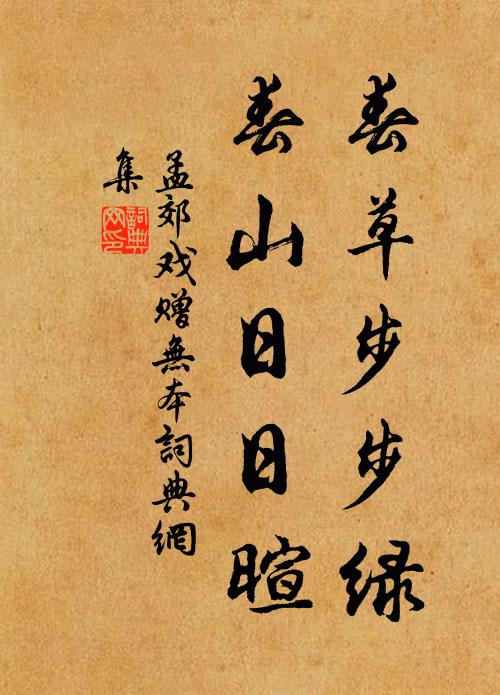 春草步步绿
春山日日暄
孟郊戏赠無本詞典網
集
詞典網印